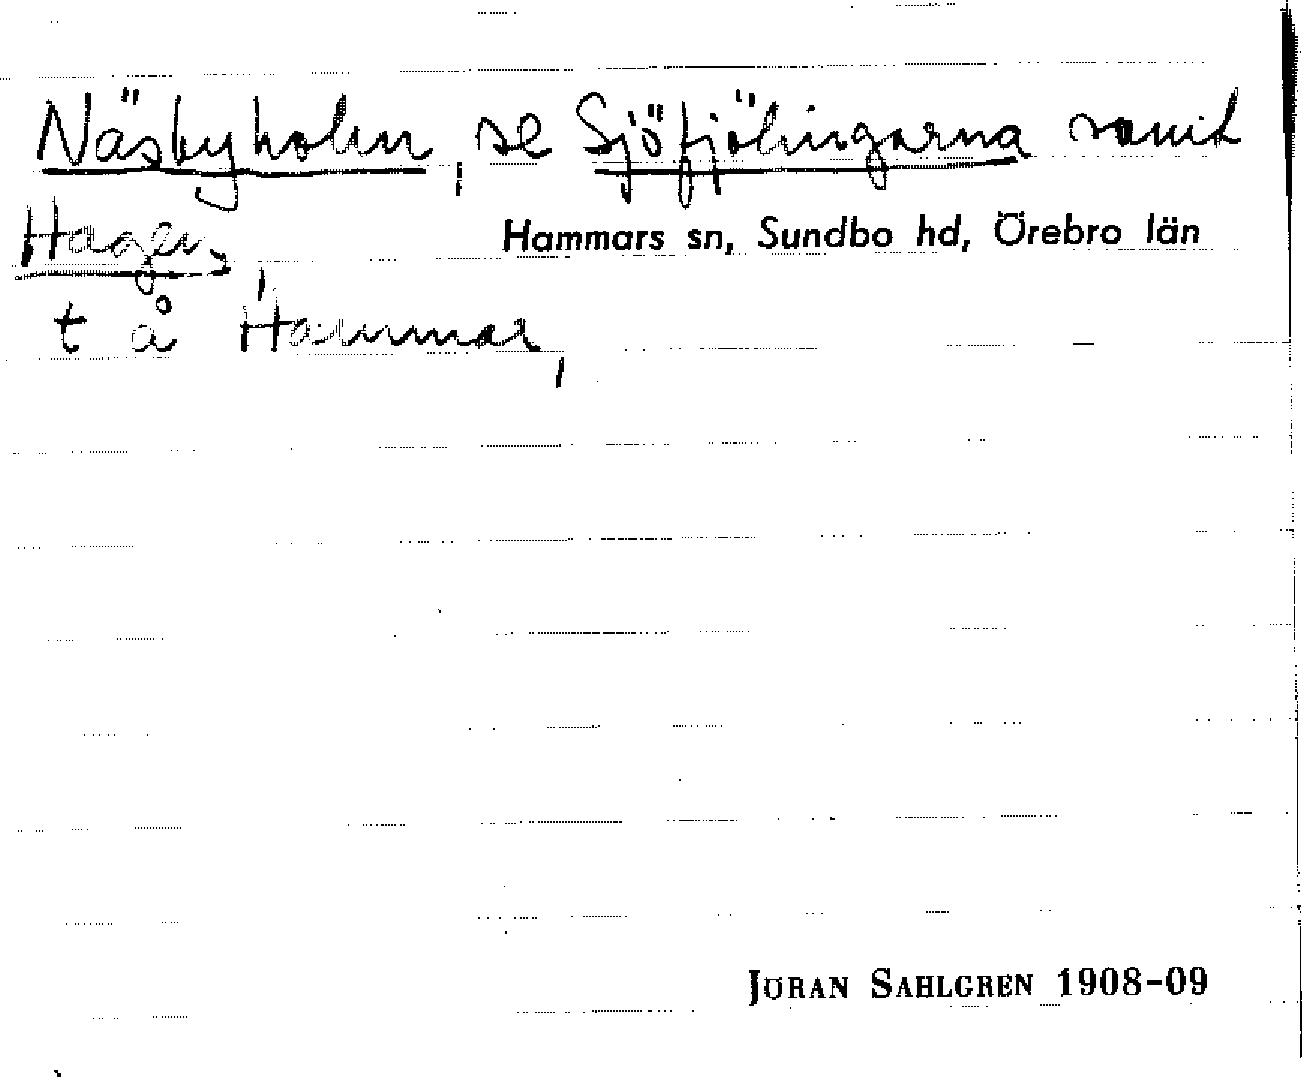 Näsbyholm, se Sjöfjölingarna samt
Hagen,
Hammars sn, Sundbo hd, Örebro län
t å Hammar,
JÖRAN SAHLGREN 1908-09